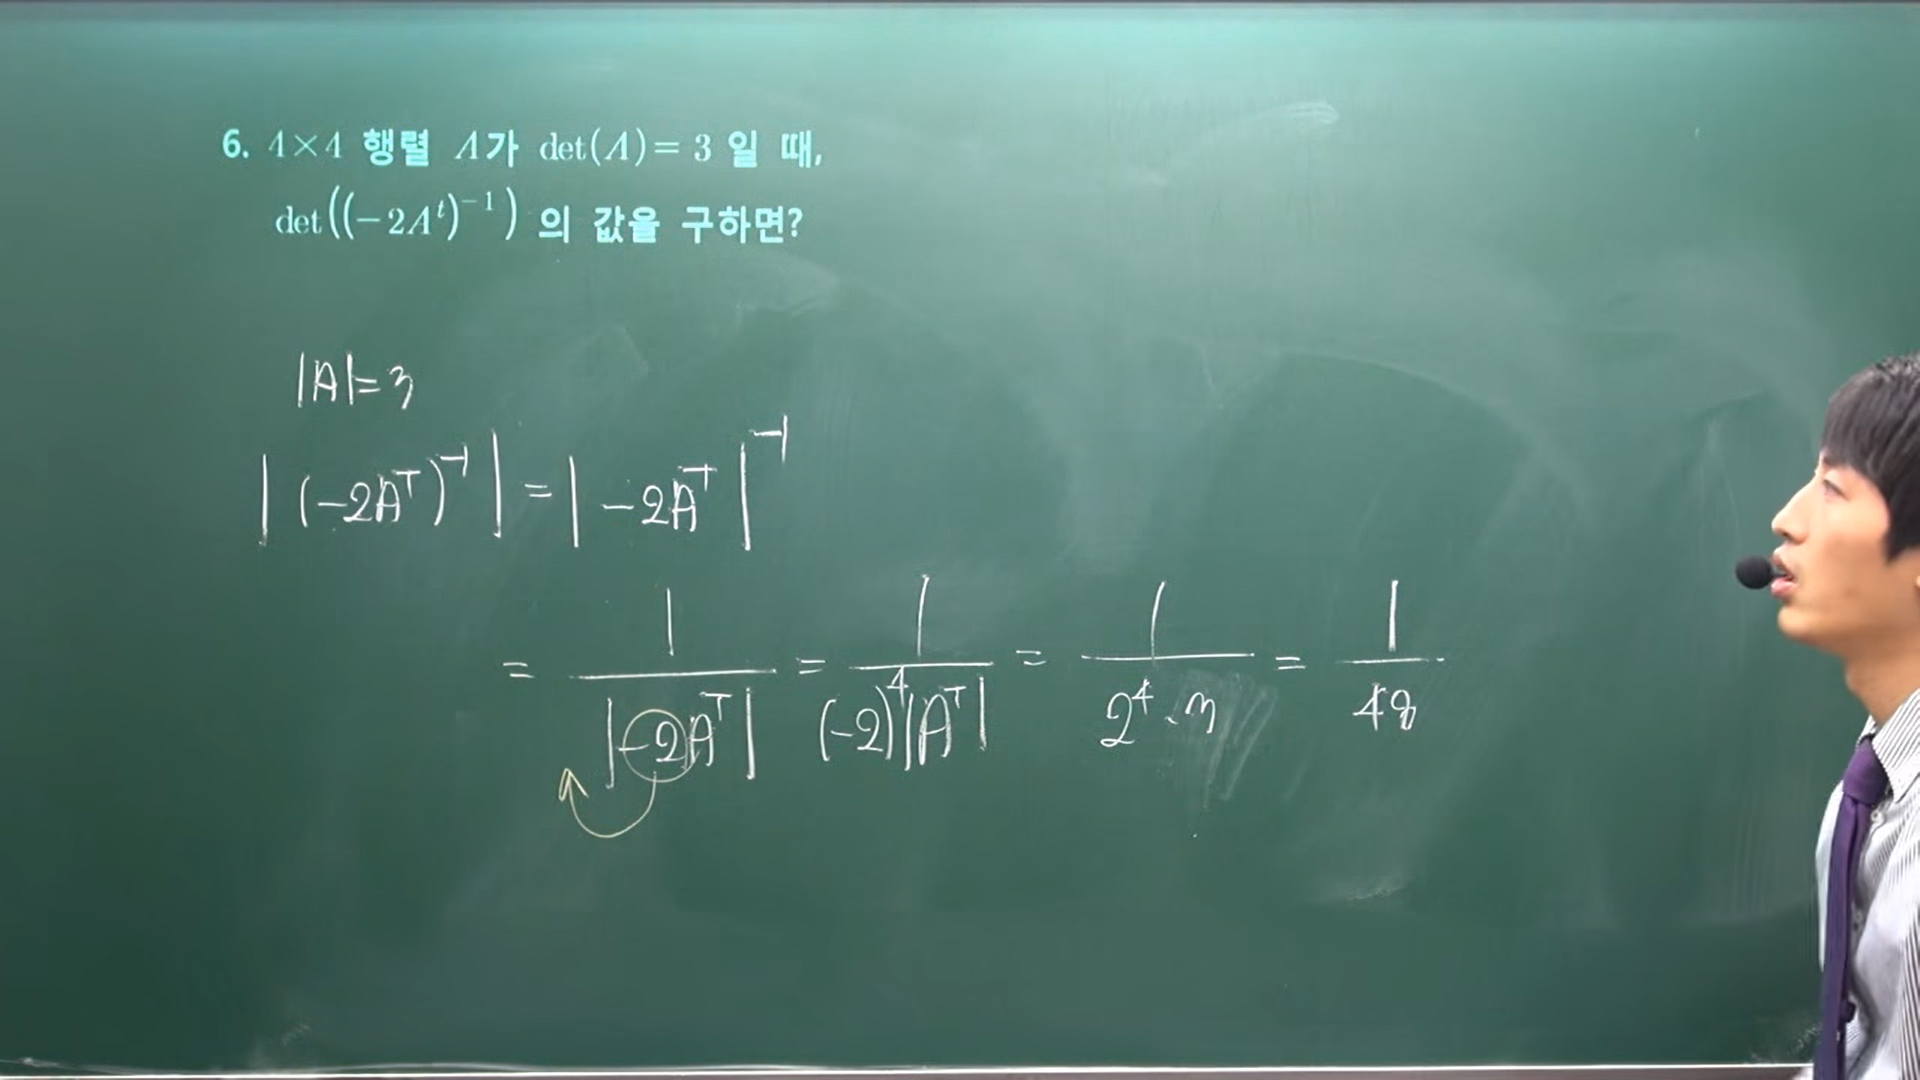 6. 4×4 행렬 A가 det(A)= 3 일 때,
det((-2Aᵗ)⁻¹) 의 값을 구하면?
|A|=3
|(-2Aᵀ)⁻¹| = |-2Aᵀ|⁻¹
= 1/|-2Aᵀ| = 1/(-2)⁴|Aᵀ| = 1/2⁴·3 = 1/48